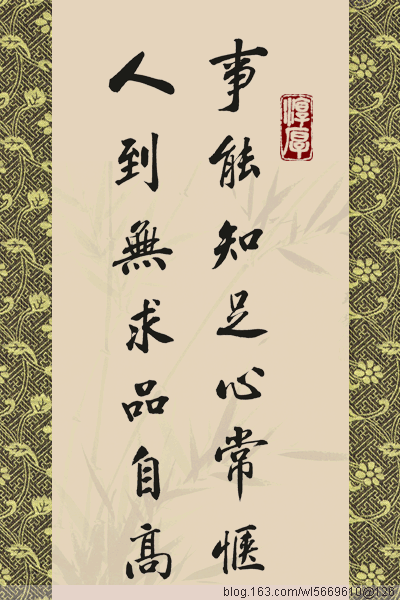 淳厚
事能知足心常惬
人到無求品自高
blog.163.com/wl5669610@126